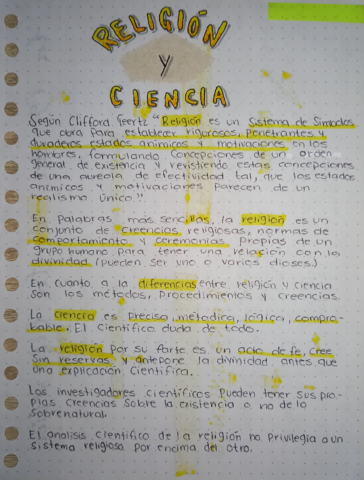 RELIGIÓN
Y
CIENCIA
Según Clifford Geertz "Religión es un Sistema de Simbolos
que obra para establecer vigorosos, penetrantes y
duraderos estados anímicos y motivaciones en los
hombres, formulando concepciones de un orden
general de existencia y revistiendo estas concepciones
de una aureola de efectividad tal, que los estados
anímicos y motivaciones parecen de un
realismo único."
En palabras más sencillas, la religión es un
conjunto de creencias religiosas, normas de
comportamiento y ceremonias propias de un
grupo humano para tener una relación con la
divinidad (pueden ser uno o varios dioses.)
En cuanto a la diferencias entre religión y ciencia
son los métodos, procedimientos y creencias.
La ciencia es precisa, metódica, lógica, compro-
bable. El científico duda de todo.
La religión por su parte es un acto de fe, cree
sin reservas y antepone la divinidad antes que
una explicación científica.
Los investigadores científicos pueden tener sus pro-
pias creencias sobre la existencia o no de lo
sobrenatural.
El analisis científico de la religión no privilegia a un
sistema religioso por encima del otro.